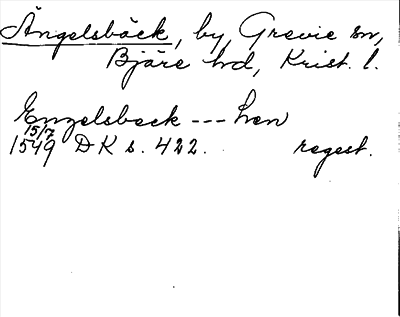 Ängelsbäck, by, Grevie sn,
Bjäre hd, Krist. l.
Engelsbeck --- hen
15/7
1549 DK s. 422. regest.